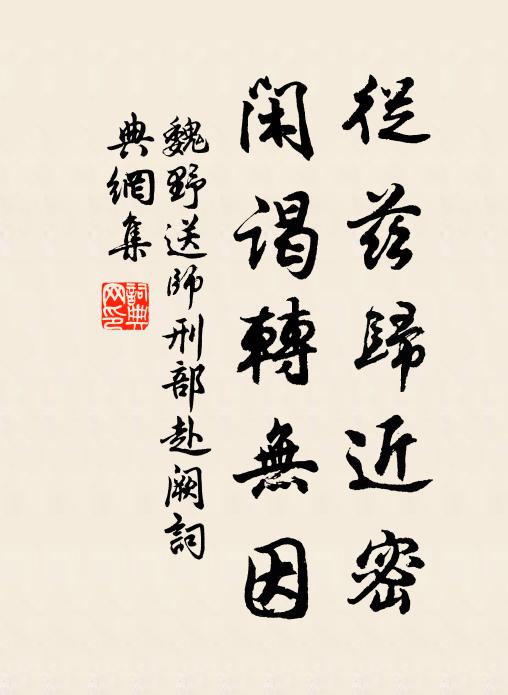 從茲歸近密
閑謁轉無因
魏野送師刑部赴闕詞
典網集
詞典網印